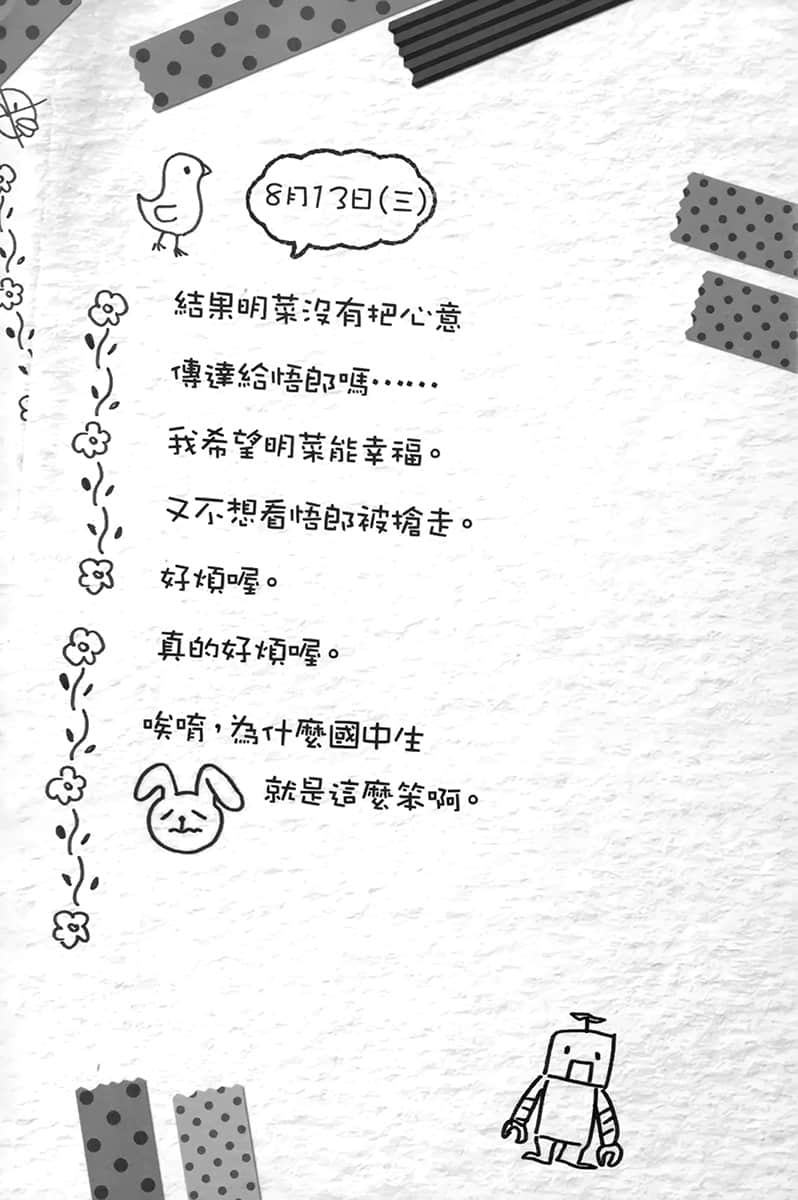 8月13日(三)
結果明菜沒有把心意
傳達給悟郎嗎……
我希望明菜能幸福。
又不想看悟郎被搶走。
好煩喔。
真的好煩喔。
唉唷，為什麼國中生
就是這麼笨啊。